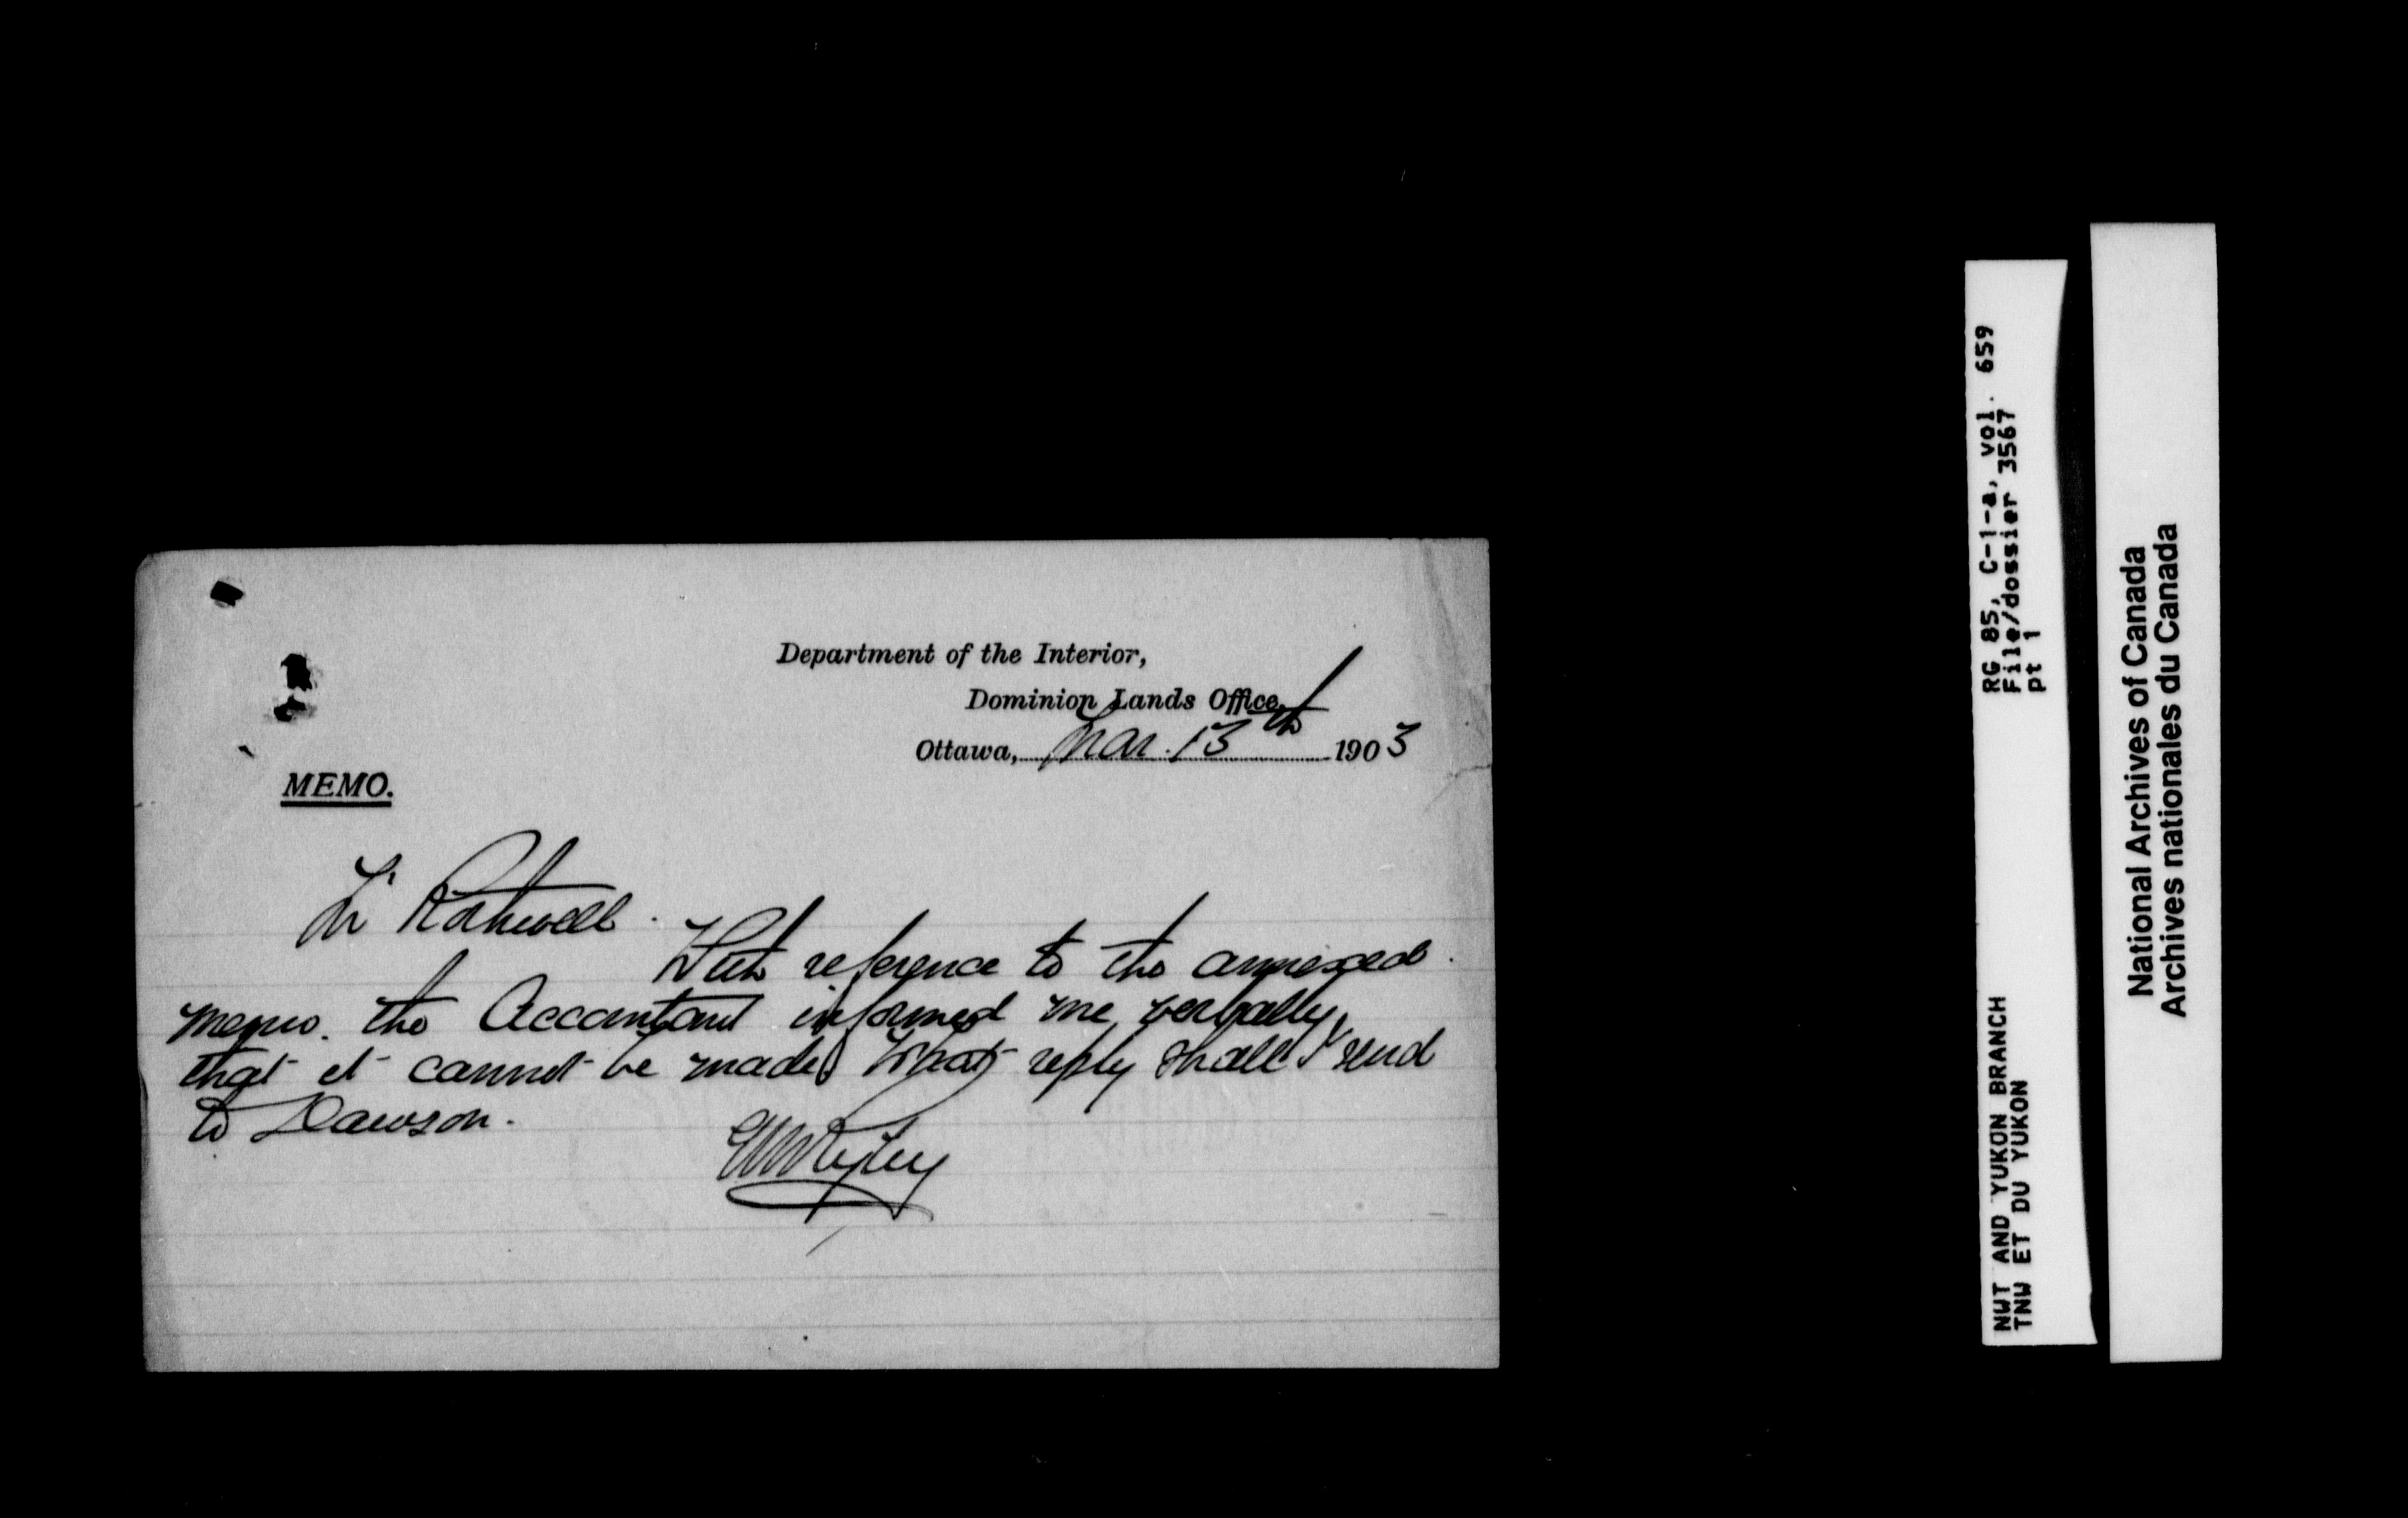 Department of the Interior,
Dominion Lands Office,
Ottawa, Mar. 13th 1903
MEMO.
Mr Rothwell.
With reference to the annexed
memo. the Accountant informed me verbally
that it cannot be made. What reply shall I send
to Dawson.
RG 85, C-1-a, vol. 659
File/dossier 3567
pt 1
NWT AND YUKON BRANCH
TNW ET DU YUKON
National Archives of Canada
Archives nationales du Canada